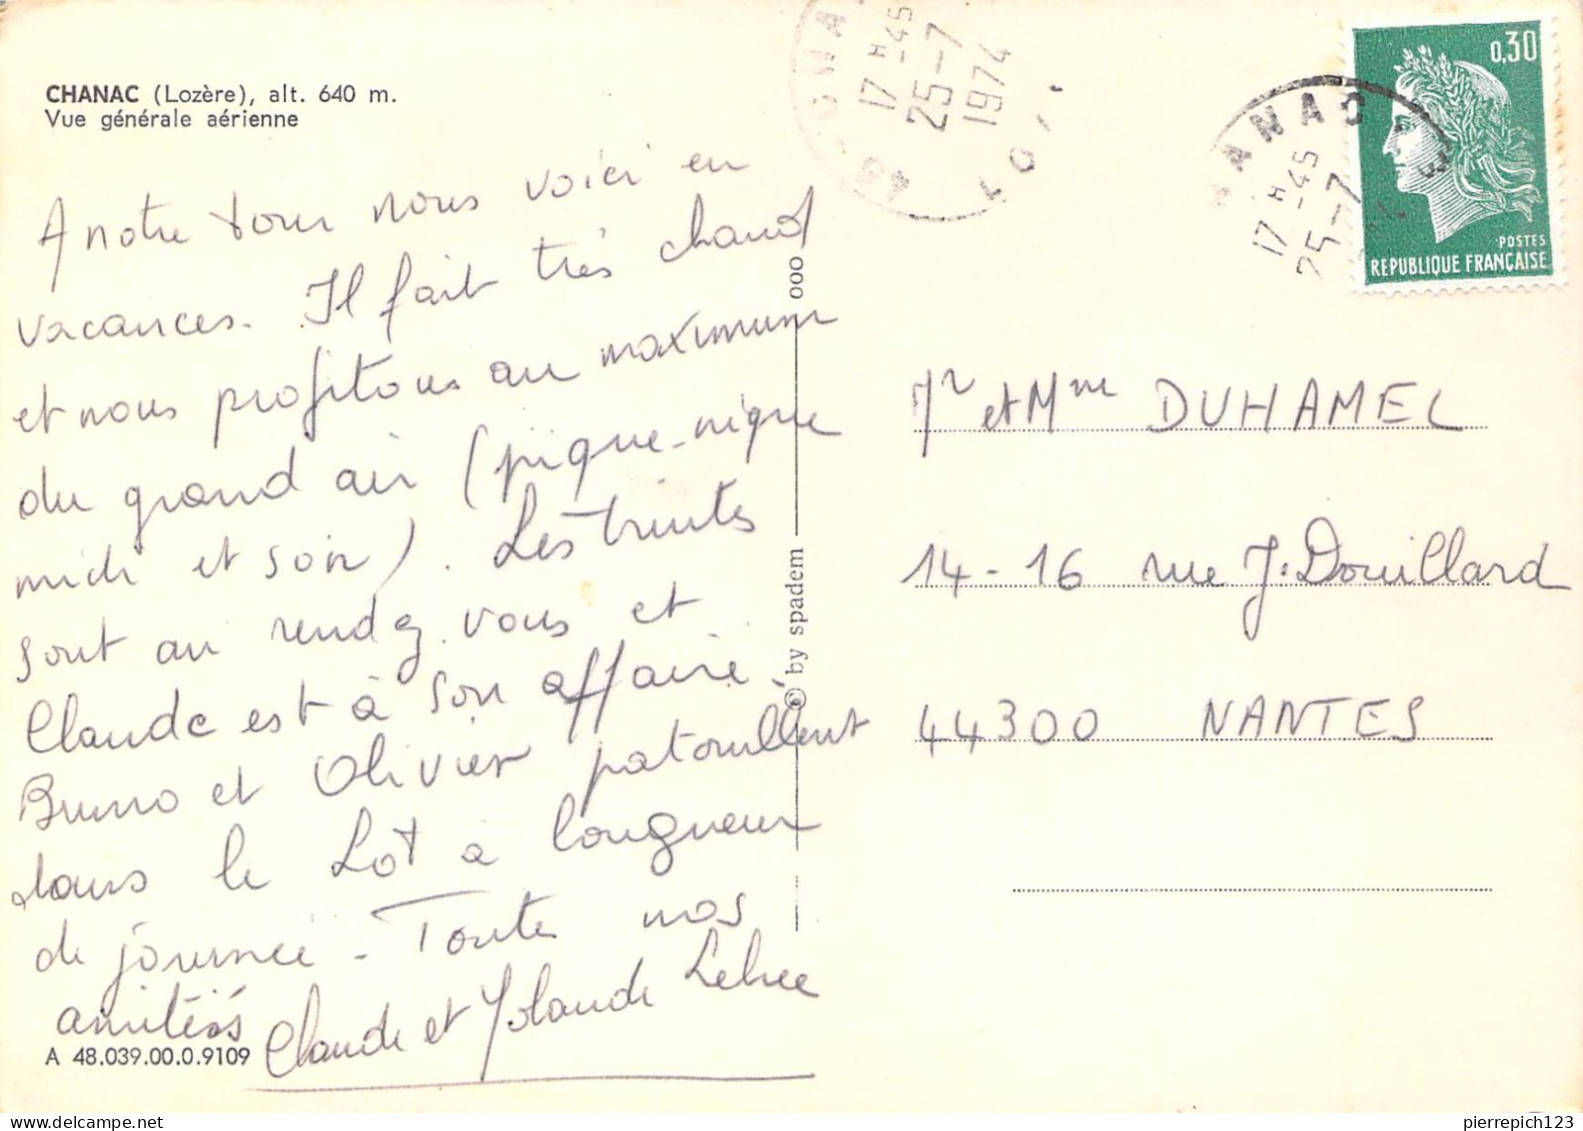 CHANAC (Lozère), alt. 640 m.
Vue générale aérienne
A notre tour nous voici en
vacances. Il fait très chaud
et nous profitons au maximum
du grand air (pique-nique
midi et soir). Les truites
sont au rendez vous et
Claude est à son affaire.
Bruno et Olivier patouillent
dans le Lot à longueur
de journée - Toutes nos
amitiés
Claude et Yolande
A 48.039.00.0.9109
© by spadem
ooo
17 H -45
25 -- 7
1974
48
HANAC
17 H -45
25 -- 7
0,30
POSTES
REPUBLIQUE FRANÇAISE
Mr et Mme DUHAMEL
14-16 rue J. Douillard
44300 NANTES
pierrepich123